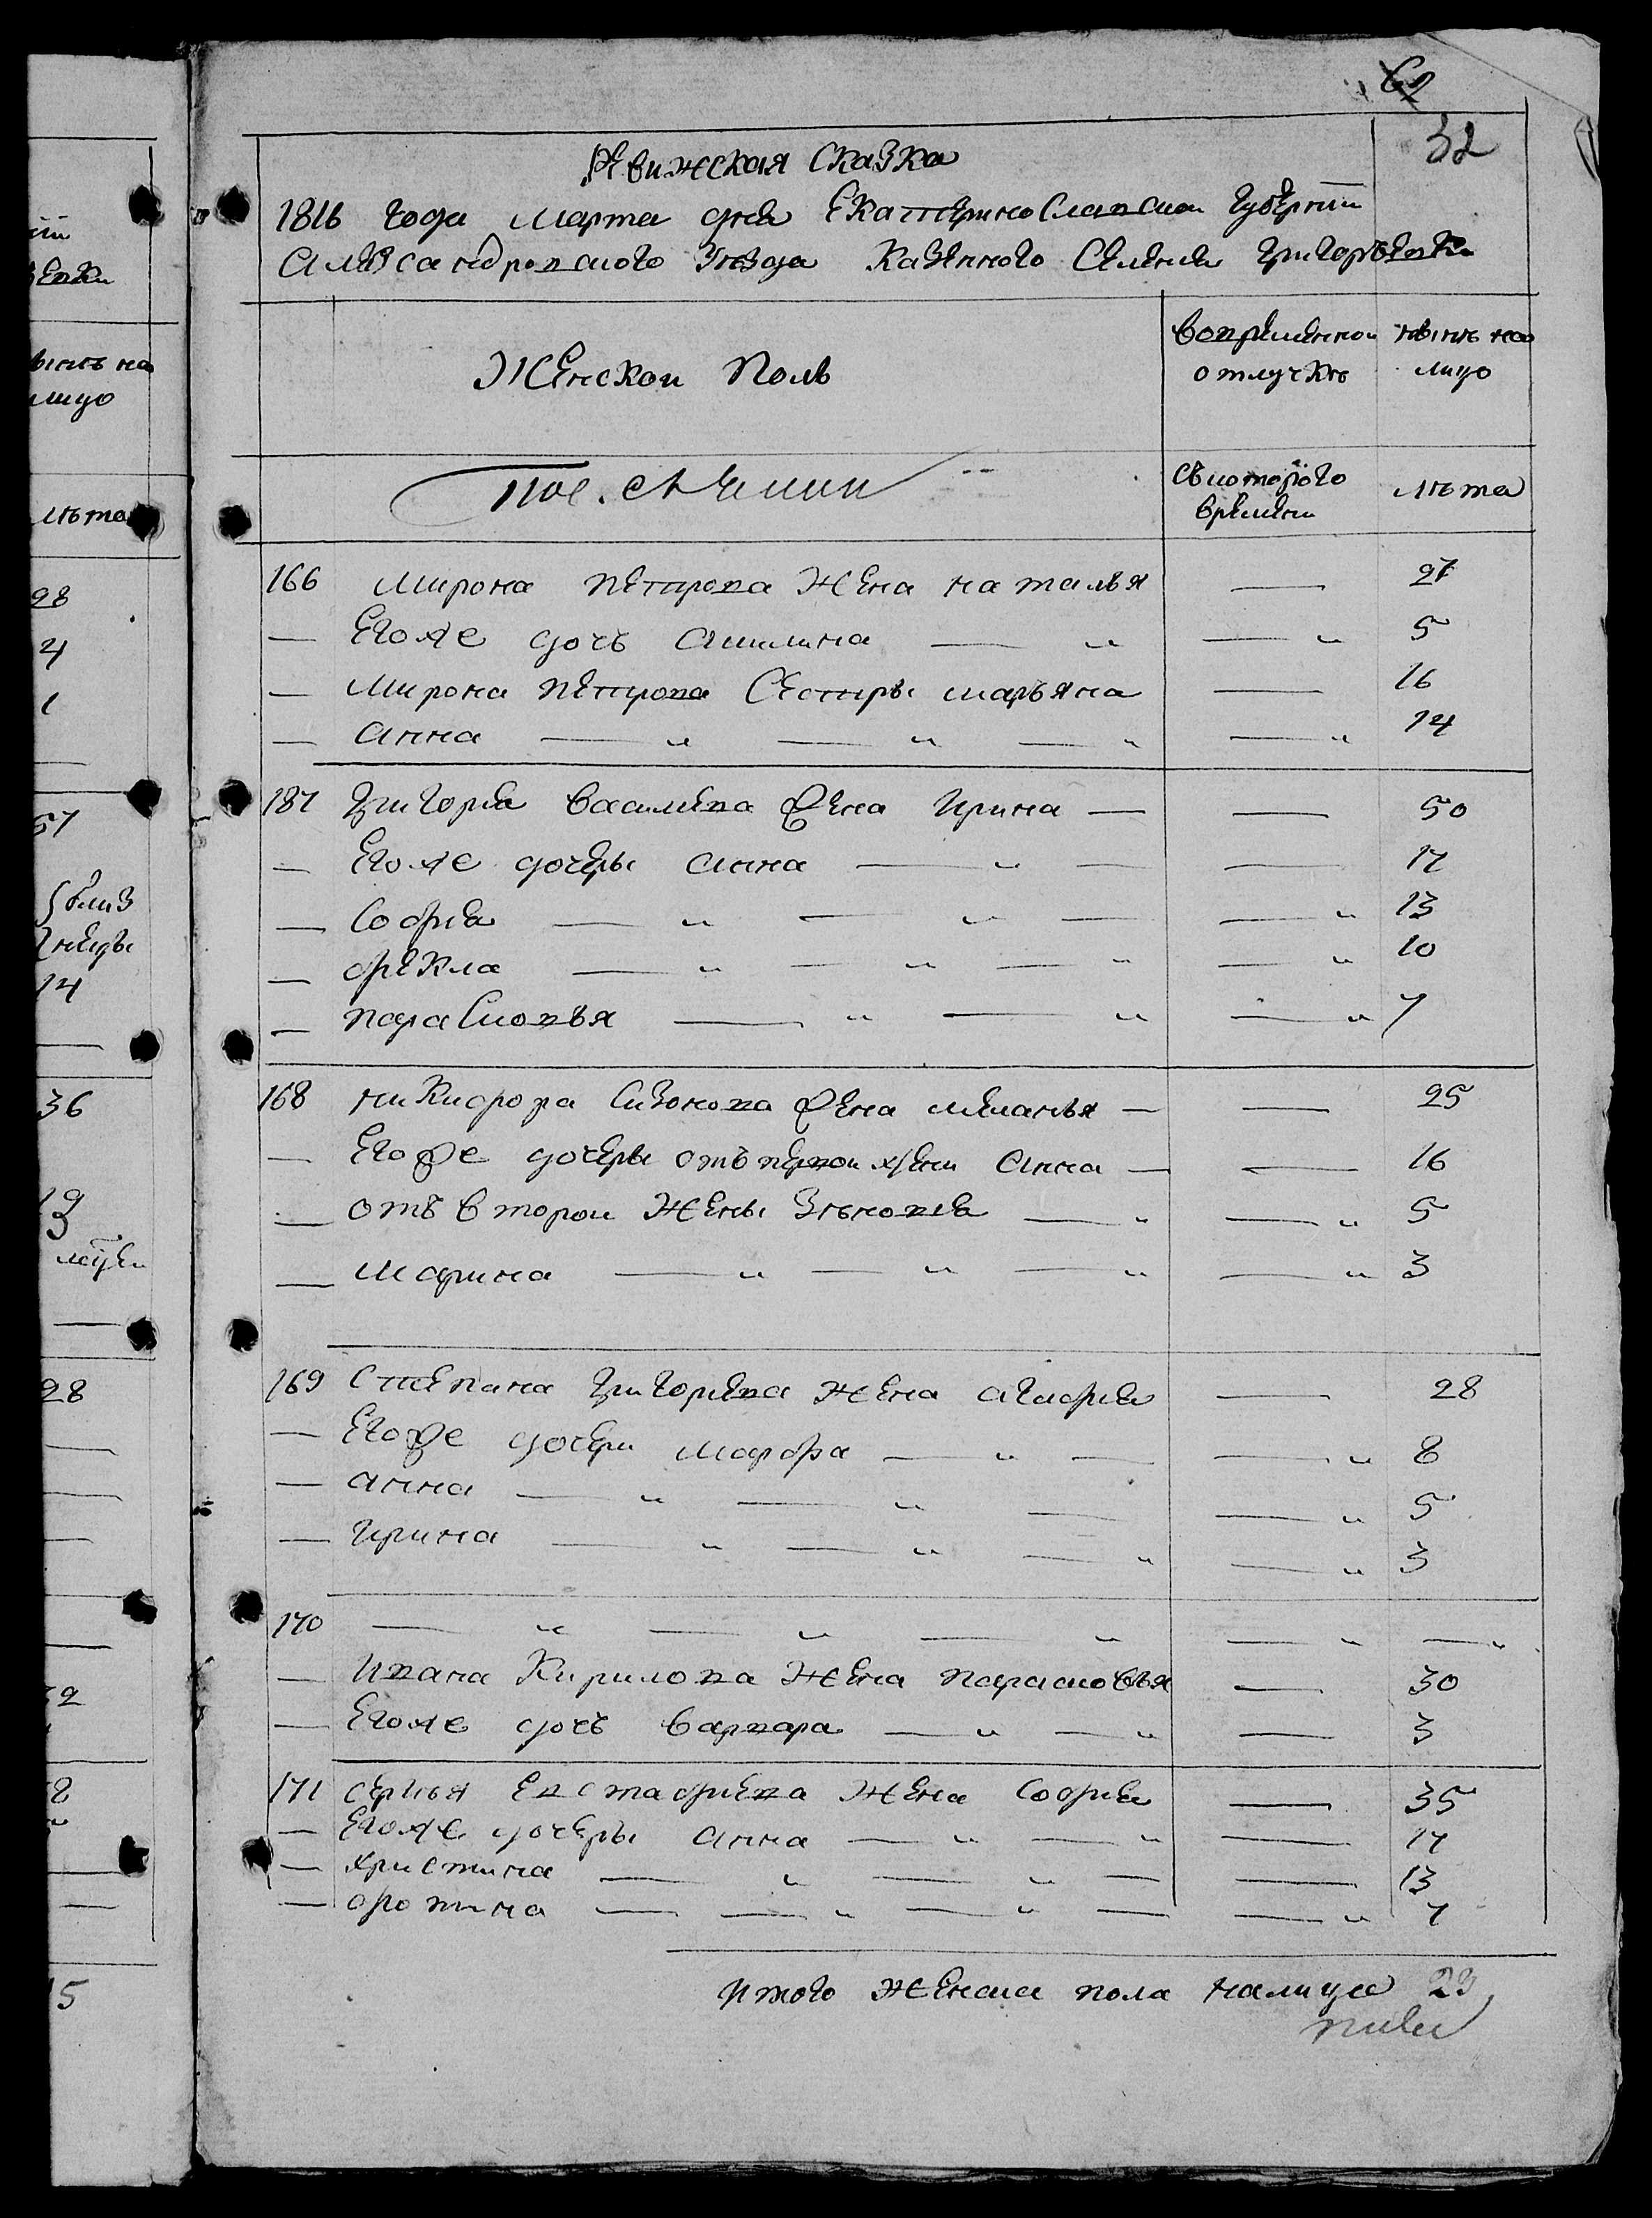 62
32
Ревижская Сказка
1816 года Марта дня Екатеринославской Губернии
Александровского Уезда Казенного Селения Григоръевки
Женской Полъ
вовременной отлучкѣ
нынѣ на лицо
съкоторого времени
лѣта
166 Мирона петрова Жена наталья — 27
— Егоже дочь Акилина — „ — „ 5
— Мирона петрова Сестры марьяна — 16
— Анна — „ — „ — „ — „ 14
187 Григория Василева Жена Ирина — — 50
— Егоже дочеры Анна — „ — — 17
— София — „ — „ — — „ 13
— фекла — „ — „ — „ — „ 10
— парасковья — „ — „ — „ 7
168 никифора Сизонова Жена меланья — — 25
— Егоже дочеры отъ первои жени Анна — — 16
— отъ второи Жены Зѣновия — „ — „ 5
— Марина — „ — „ — „ — „ 3
169 Степана Григориева жена агафия — 28
— Егоже дочери марфа — „ — — „ 8
— анна — „ — „ — — „ 5
— Ирина — „ — „ — „ — „ 3
170 — „ — „ — „ — „ — „
— Ивана Кирилова Жена парасковья — 30
— Егоже дочь варвара — „ — „ — 3
171 сергѣя Евстафиева Жена София — 35
— Егоже дочеры анна — „ — „ — 17
— христина — „ — „ — — 13
— фотина — — „ — „ — — „ 7
Итого женска пола налицо 23
28
4
1
57
14
36
19
28
лѣта